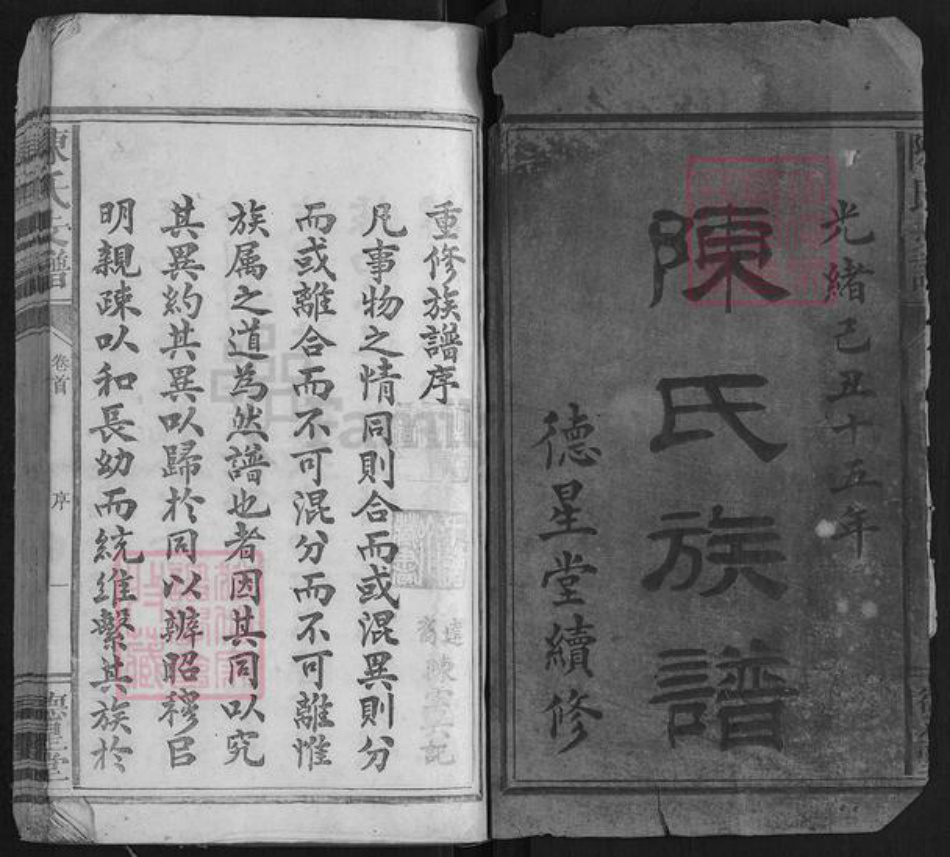 光緒己丑十五年
陳氏族譜
德星堂續修
重修族譜序
凡事物之情同則合而或混異則分
而或離合而不可混分而不可離惟
族属之道為然譜也者因其同以究
其異約其異以歸於同以辨昭穆以
明親疎以和長幼而統維繫其族於
陳氏支譜
卷首
序
一
德星堂